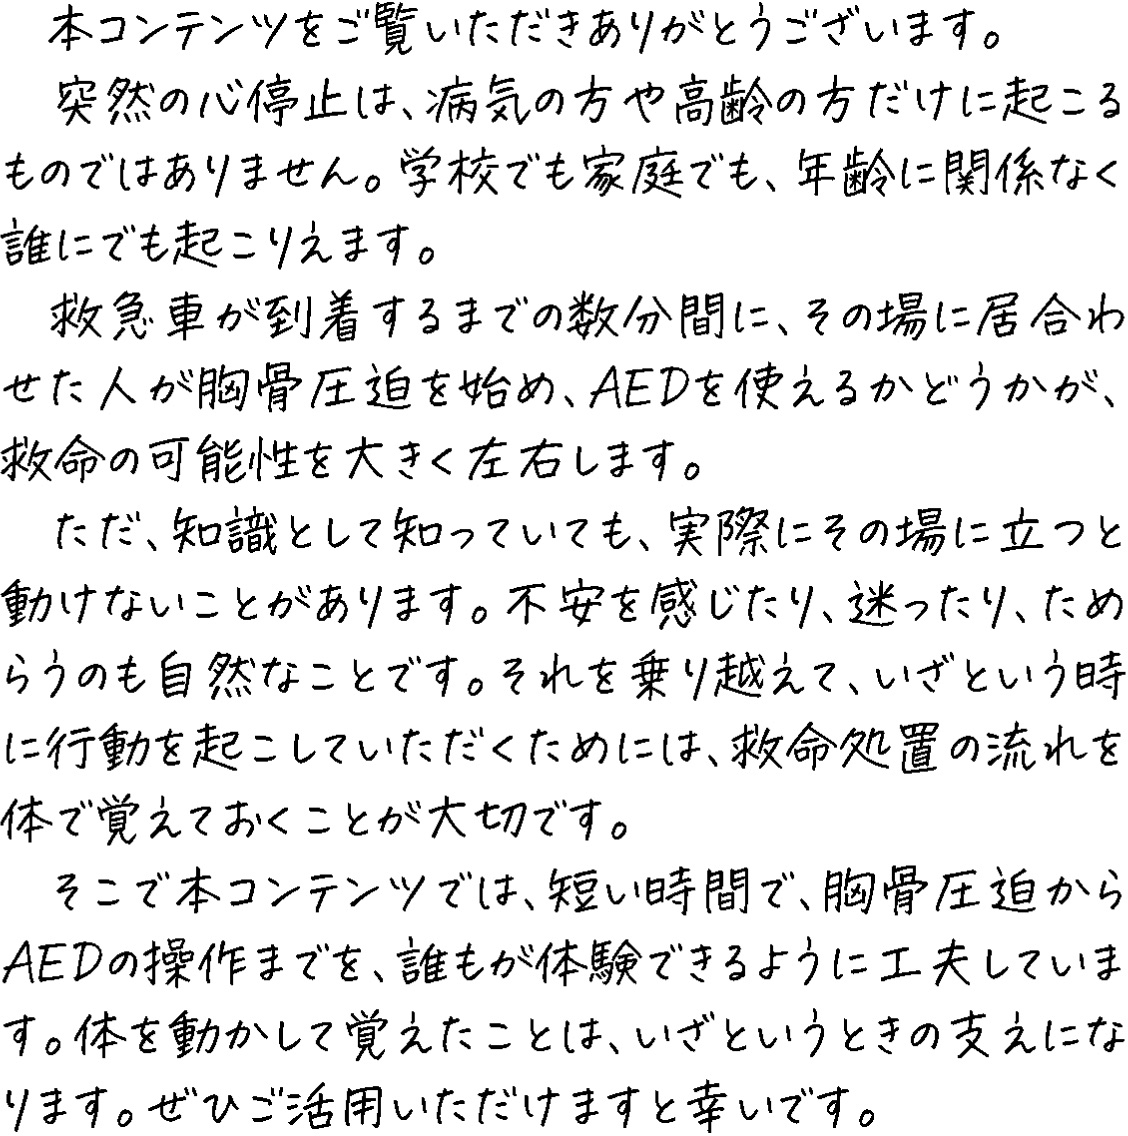 本コンテンツをご覧いただきありがとうございます。
突然の心停止は、病気の方や高齢の方だけに起こる
ものではありません。学校でも家庭でも、年齢に関係なく
誰にでも起こりえます。
救急車が到着するまでの数分間に、その場に居合わ
せた人が胸骨圧迫を始め、AEDを使えるかどうかが、
救命の可能性を大きく左右します。
ただ、知識として知っていても、実際にその場に立つと
動けないことがあります。不安を感じたり、迷ったり、ため
らうのも自然なことです。それを乗り越えて、いざという時
に行動を起こしていただくためには、救命処置の流れを
体で覚えておくことが大切です。
そこで本コンテンツでは、短い時間で、胸骨圧迫から
AEDの操作までを、誰もが体験できるように工夫していま
す。体を動かして覚えたことは、いざというときの支えにな
ります。ぜひご活用いただけますと幸いです。